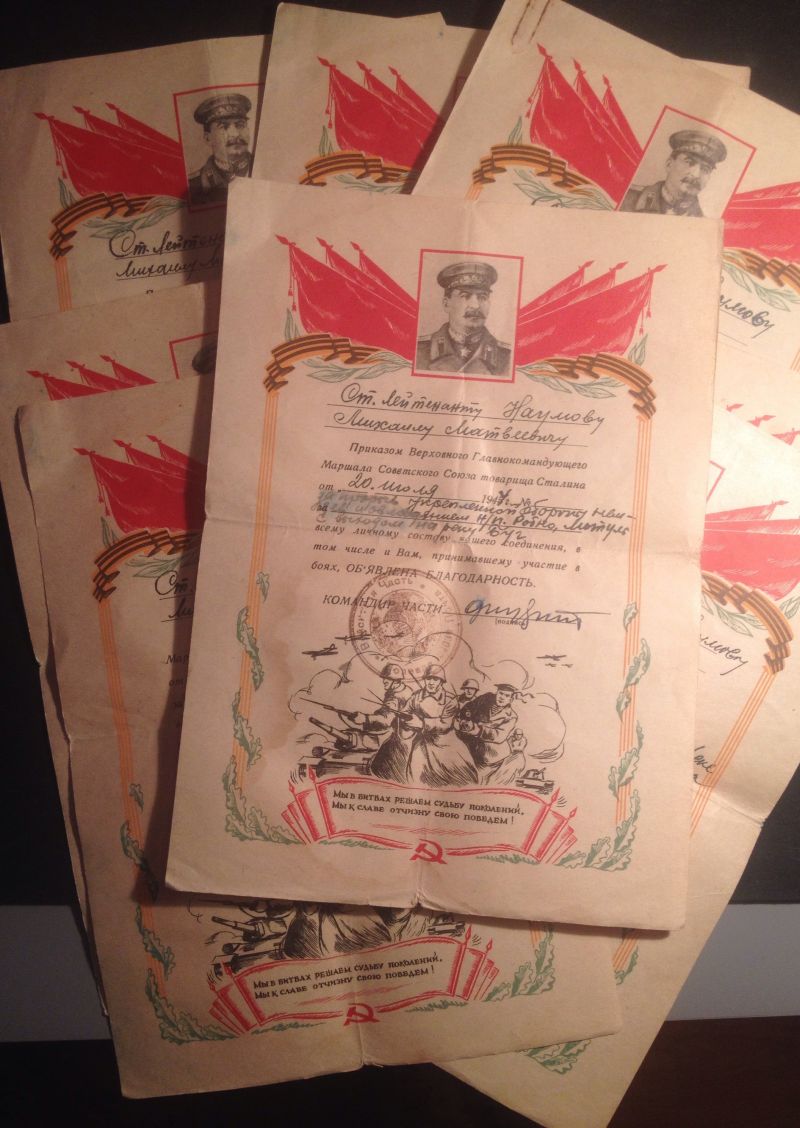 Ст. Лейтенанту Наумову
Михаилу Матвеевичу
Приказом Верховного Главнокомандующего
Маршала Советского Союза товарища Сталина
от 20 июля 1944 г. №
за прорыв укрепленной обороны нем-
за
с выходом на реку Буг
всему личному составу нашего соединения, в
том числе и Вам, принимавшему участие в
боях, ОБ'ЯВЛЕНА БЛАГОДАРНОСТЬ.
КОМАНДИР ЧАСТИ
(подпись)
МЫ В БИТВАХ РЕШАЕМ СУДЬБУ ПОКОЛЕНИЙ,
МЫ К СЛАВЕ ОТЧИЗНУ СВОЮ ПОВЕДЕМ!
Ст. Лейтен
Михаилу М
умову
Ст.
Ми
Мар
от
умову
МЫ В БИТВАХ РЕШАЕМ СУДЬБУ ПОКОЛЕНИЙ,
МЫ К СЛАВЕ ОТЧИЗНУ СВОЮ ПОВЕДЕМ!